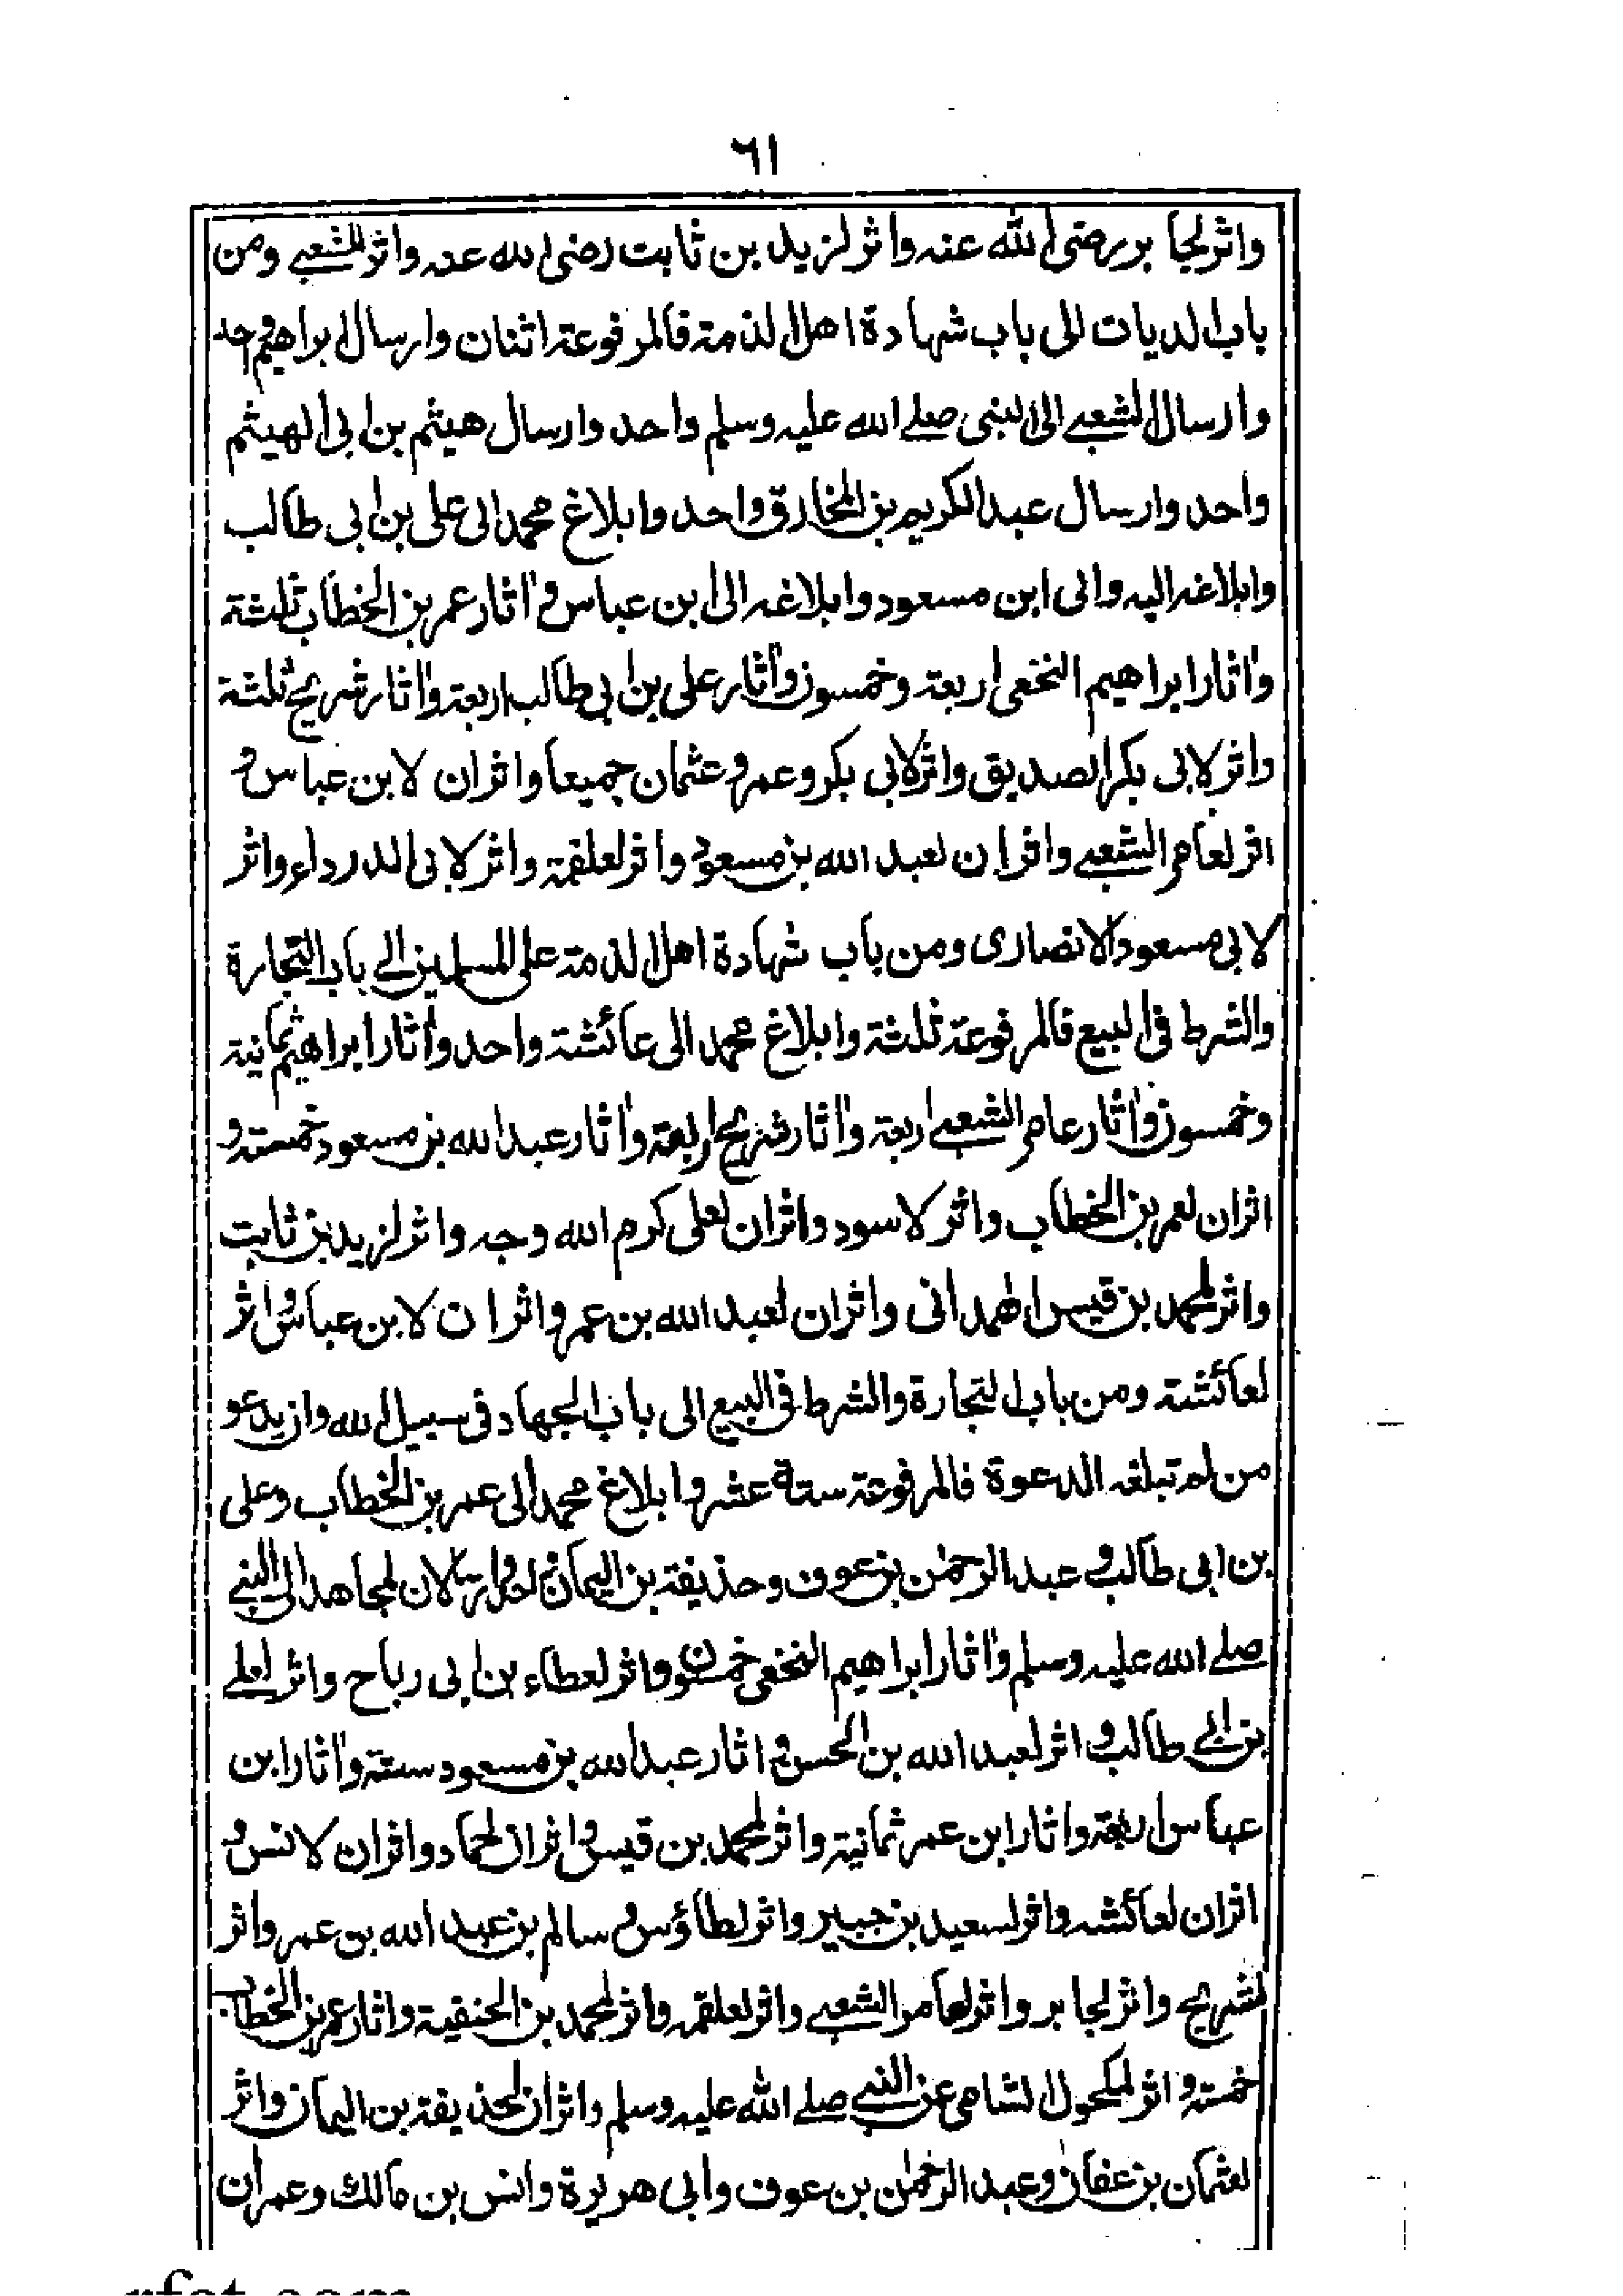 ٦١
واثر لجابر رضى الله عنه واثر لزيد بن ثابت رضى الله عنه واثر للشعبے ومن
باب الديات الى باب شهادة اهل الذمة فالمرفوعة اثنان وارسال ابراهيم واحد
وارسال الشعبے الى النبى صلے الله عليه وسلم واحد وارسال هيثم بن ابى الهيثم
واحد وارسال عبد الكريم بن المخارق واحد وابلاغ محمد الى على بن ابى طالب
وابلاغه اليه والى ابن مسعود وابلاغه الى ابن عباس و اثار عمر بن الخطاب ثلثة
واثار ابراهيم النخعى اربعة وخمسون واثار على بن ابى طالب اربعة واثار شريح ثلثة
واثر لابى بكر الصديق واثر لابى بكر وعمر و عثمان جميعا واثران لابن عباس و
اثر لعامر الشعبے واثران لعبد الله بن مسعود واثر لعلقمة واثر لابى الدرداء واثر
لابى مسعود الانصارى ومن باب شهادة اهل الذمة على المسلمين الے باب التجارة
والشرط فى البيع فالمرفوعة ثلثة وابلاغ محمد الى عائشة واحد واثار ابراهيم ثمانية
وخمسون واثار عامر الشعبے اربعة واثار شريح اربعة واثار عبد الله بن مسعود خمسة و
اثران لعمر بن الخطاب واثر لاسود واثران لعلى كرم الله وجه واثر لزيد بن ثابت
واثر لمحمد بن قيس الهمدانى واثران لعبد الله بن عمر واثران لابن عباس و اثر
لعائشة ومن باب التجارة والشرط فى البيع الى باب الجهاد فى سبيل الله وان يدعو
من لم تبلغه الدعوة فالمرفوعة ستة عشر وابلاغ محمد الى عمر بن الخطاب وعلى
بن ابى طالب و عبد الرحمٰن بن عوف وحذيفة بن اليمان واحد وارسالان لمجاهد الى النبے
صلے الله عليه وسلم واثار ابراهيم النخعى خمسون واثر لعطاء بن ابى رباح واثر لعلے
بن ابے طالب و اثر لعبد الله بن الحسن و اثار عبد الله بن مسعود ستة واثار ابن
عباس اربعة واثار ابن عمر ثمانية واثر لمحمد بن قيس و اثران لحماد واثران لانس و
اثران لعائشه واثر لسعيد بن جبير واثر لطاؤس و سالم بن عبد الله بن عمر واثر
لشريح واثر لجابر واثر لعامر الشعبے واثر لعلقمه واثر لمحمد بن الحنفية واثار عمر بن الخطاب
خمسة و اثر لمكحول الشامى عن النبے صلے الله عليه وسلم واثران لحذيفة بن اليمان واثر
لعثمان بن عفان وعبد الرحمٰن بن عوف وابى هريرة وانس بن مالك وعمران